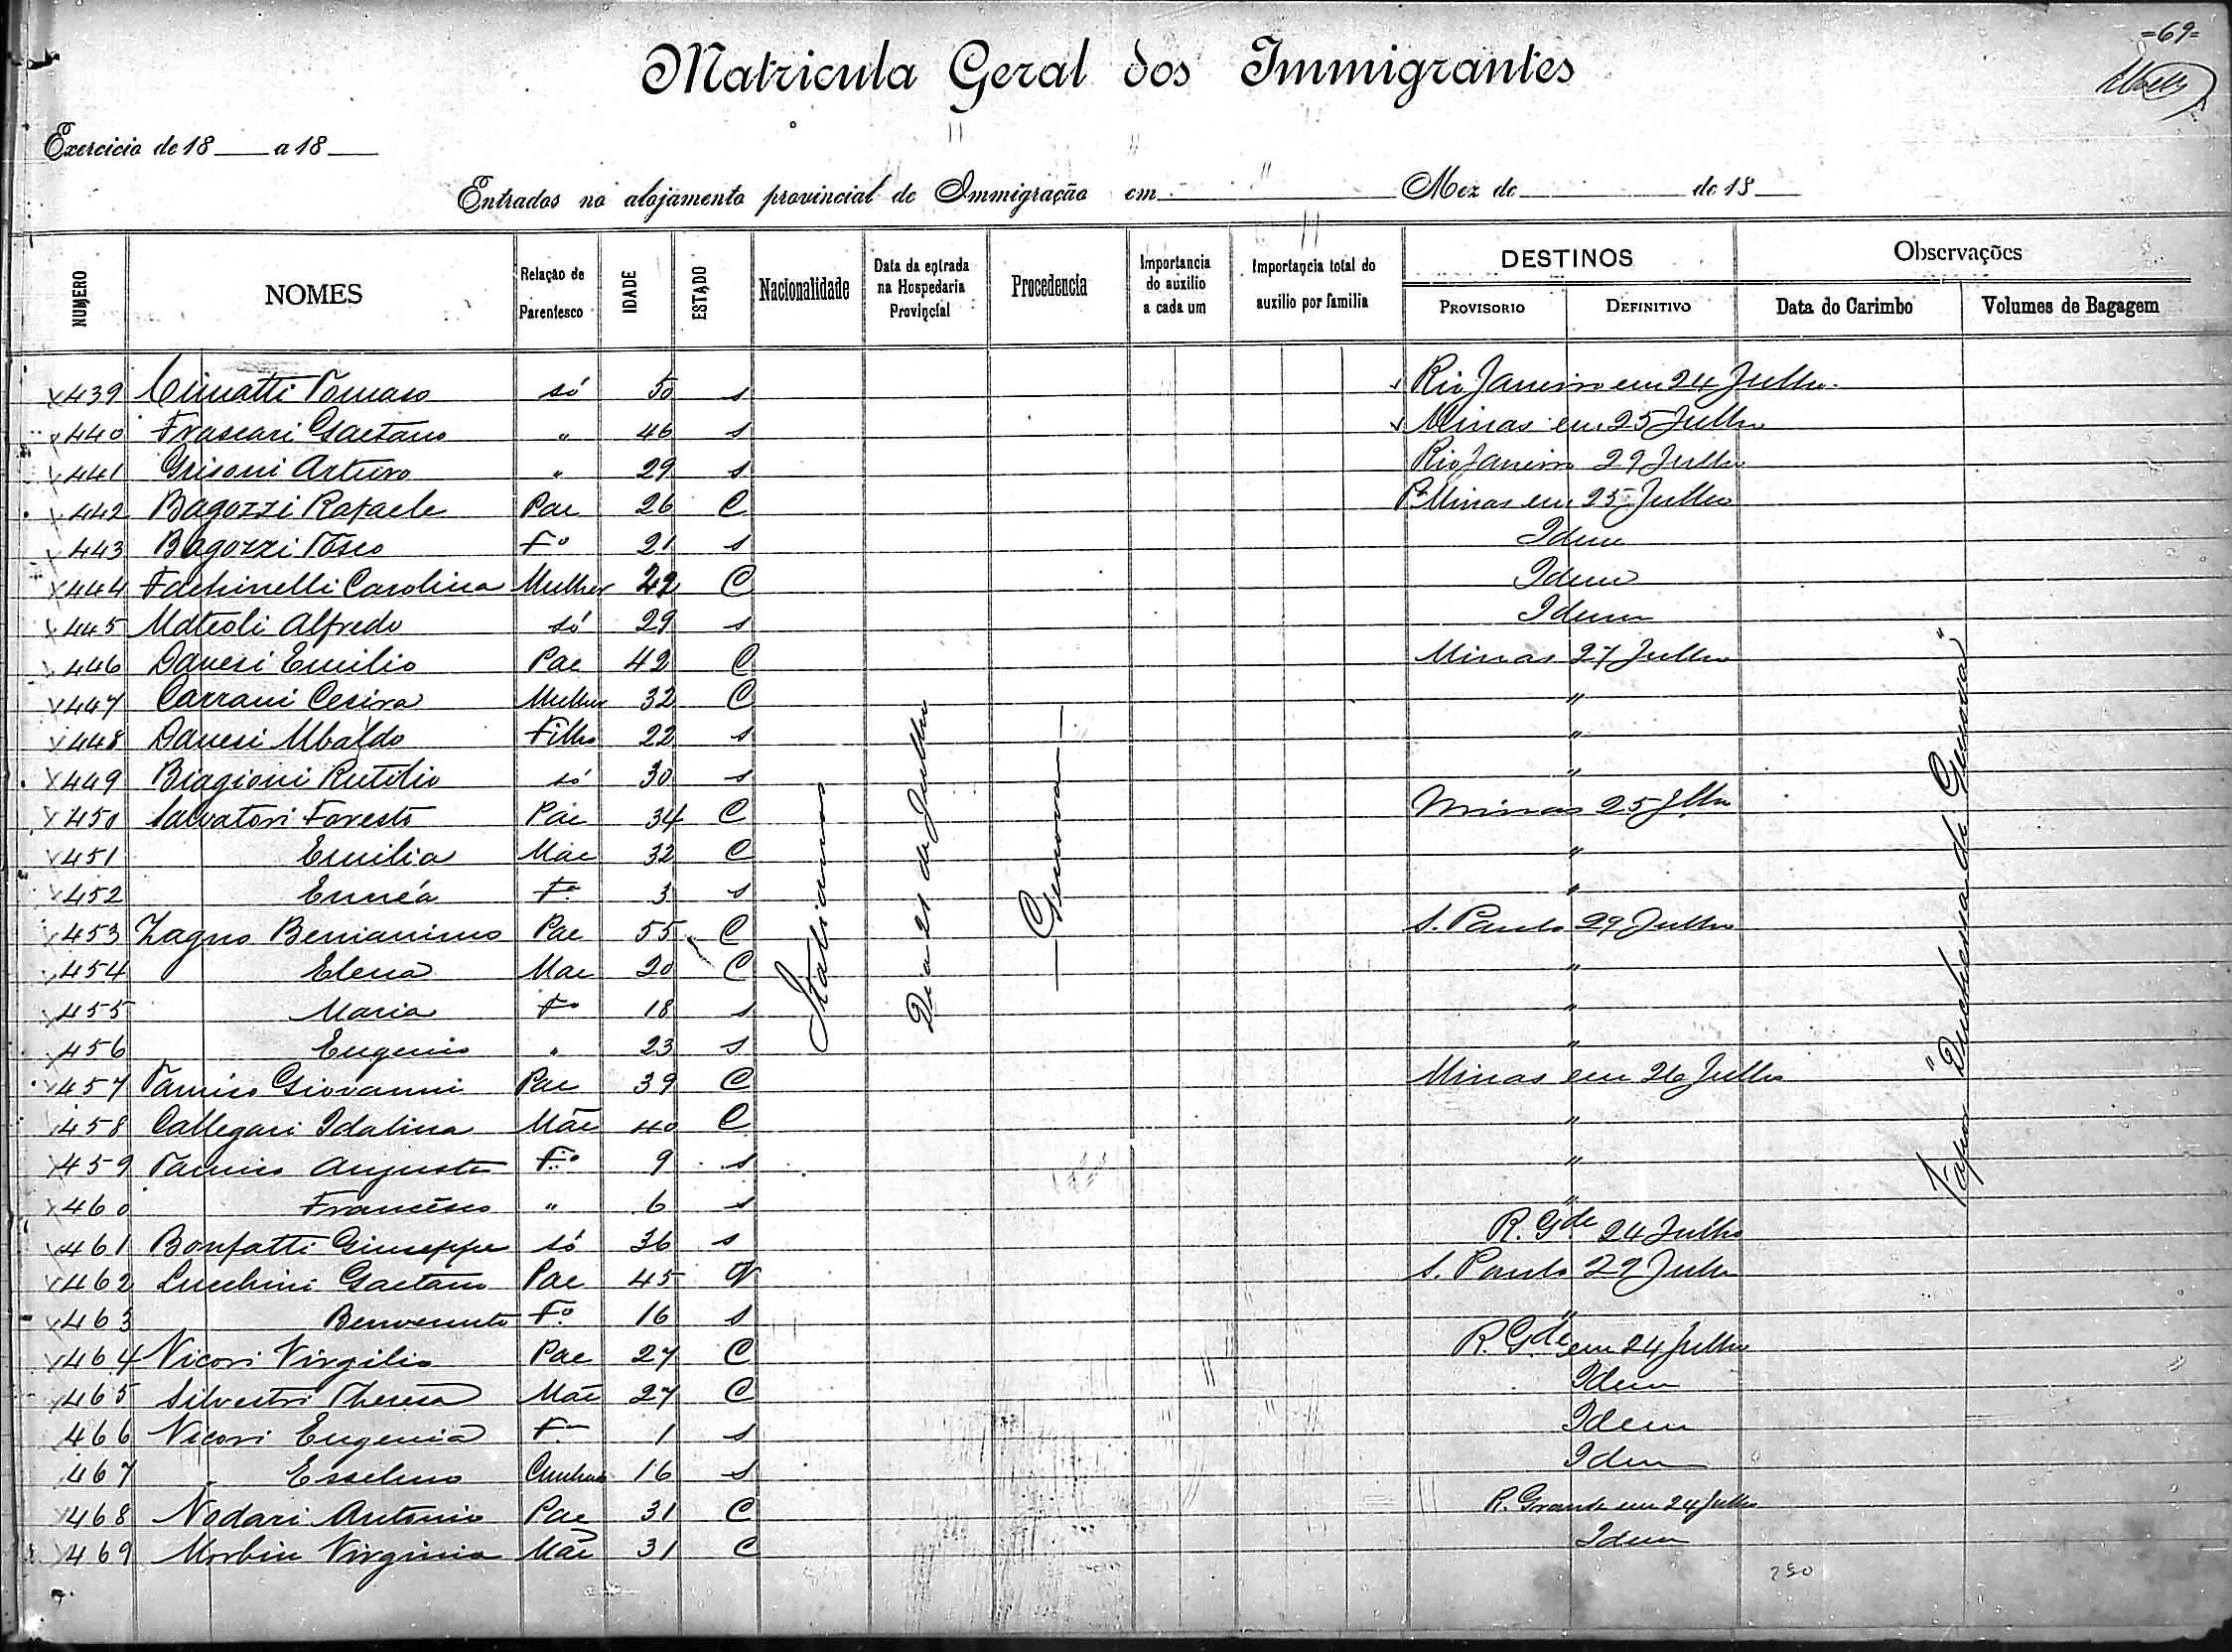 =69=
Matricula Geral dos Immigrantes
Exercicio de 18 a 18
Entrados no alojamento provincial de Immigração em Mez de de 18
NUMERO NOMES Relação de Parentesco IDADE ESTADO Nacionalidade Data da entrada na Hospedaria Provincial Procedencia Importancia do auxilio a cada um Importancia total do auxilio por familia DESTINOS PROVISORIO DEFINITIVO Observações Data do Carimbo Volumes de Bagagem
439 Cimatti Tomaso só 50 s Rio Janeiro em 24 Julho
440 Frascari Gaetano " 46 s Minas em 25 Julho
441 Grisoni Arturo " 29 s Rio Janeiro 29 Julho
442 Bagozzi Rafaele Pae 26 C Pª Minas em 25 Julho
443 Bagozzi Fº 21 s Idem
444 Fachinelli Carolina Mulher C Idem
445 Mateoli Alfredo só 29 s Idem
446 Danesi Emilio Pae 42 C Minas 27 Julho
447 Carrani Cesira Mulher 32 C "
448 Danesi Ubaldo Filho 22 s "
449 Biagioni Rutilio só 30 s "
450 Salvatori Foresto Pae 34 C Minas 25 Jlho
451 Emilia Mae 32 C "
452 Ennéa Fª 3 s "
453 Zagno Benianimo Pae 55 C S. Paulo 29 Julho
454 Elena Mae 20 C "
455 Maria Fª 18 s "
456 Eugenio " 23 s "
457 Giovanni Pae 39 C Minas em 26 Julho
458 Callegari Idalina Mãe 40 C "
459 Augusto Fº 9 s "
460 Francesco " 6 s "
461 Bonfatti Giuseppe só 36 s R. Gde 24 Julho
462 Lucchini Gaetano Pae 45 V S. Paulo 29 Julho
463 Benvenuto Fº 16 s "
464 Nicori Virgilio Pae 27 C R. Gde em 24 Julho
465 Silvestri Theresa Mãe 27 C Idem
466 Nicori Eugenia Fª 1 s Idem
467 " Esselino Cunhado 16 s Idem
468 Nodari Antonio Pae 31 C R. Grande em 24 Julho
469 Morbin Virginia Mãe 31 C Idem
Italianos
Dia 21 de Julho
Genova
Vapor "Duchessa de Genova"
250